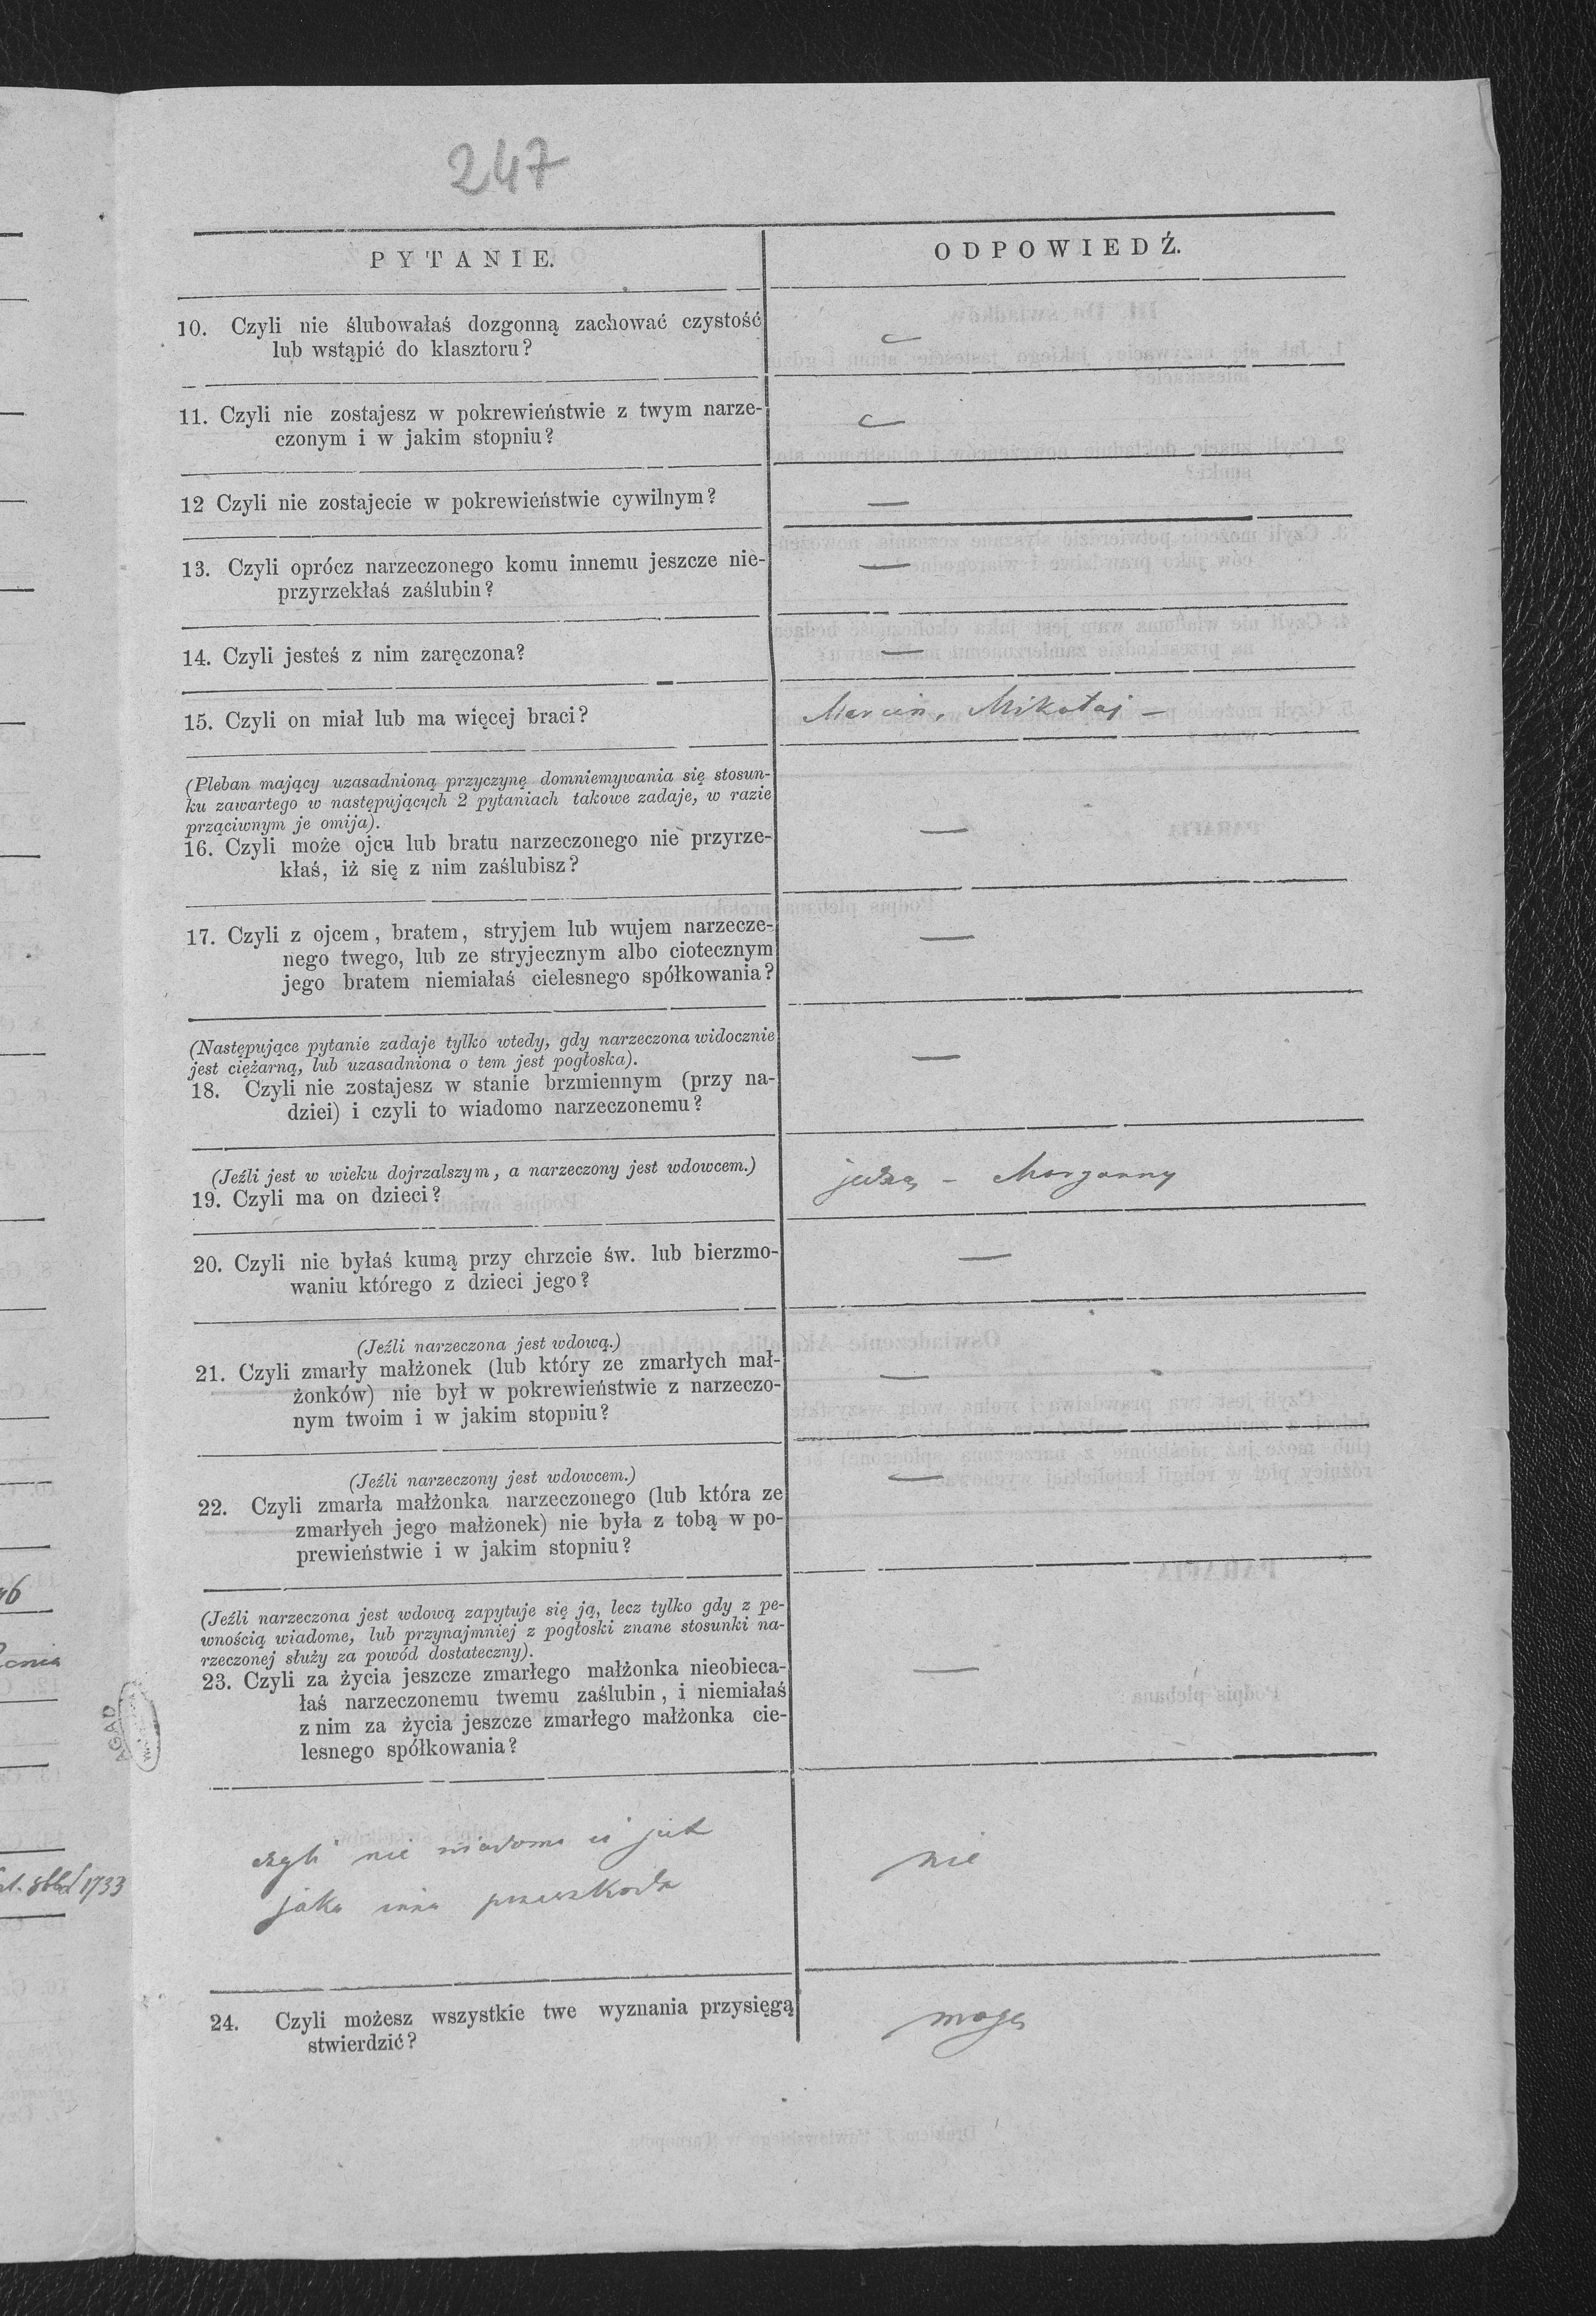 247
PYTANIE.
ODPOWIEDŹ.
10. Czyli nie ślubowałaś dozgonną zachować czystość
lub wstąpić do klasztoru?
11. Czyli nie zostajesz w pokrewieństwie z twym narze-
czonym i w jakim stopniu?
12 Czyli nie zostajecie w pokrewieństwie cywilnym?
—
13. Czyli oprócz narzeczonego komu innemu jeszcze nie-
przyrzekłaś zaślubin?
—
14. Czyli jesteś z nim zaręczona?
—
15. Czyli on miał lub ma więcej braci?
Marcin, Mikołaj —
(Pleban mający uzasadnioną przyczynę domniemywania się stosun-
ku zawartego w następujących 2 pytaniach takowe zadaje, w razie
prząciwnym je omija).
16. Czyli może ojcu lub bratu narzeczonego nie przyrze-
kłaś, iż się z nim zaślubisz?
—
17. Czyli z ojcem, bratem, stryjem lub wujem narzecze-
nego twego, lub ze stryjecznym albo ciotecznym
jego bratem niemiałaś cielesnego spółkowania?
—
(Następujące pytanie zadaje tylko wtedy, gdy narzeczona widocznie
jest ciężarną, lub uzasadniona o tem jest pogłoska).
18. Czyli nie zostajesz w stanie brzmiennym (przy na-
dziei) i czyli to wiadomo narzeczonemu?
—
(Jeźli jest w wieku dojrzalszym, a narzeczony jest wdowcem.)
19. Czyli ma on dzieci?
20. Czyli nie byłaś kumą przy chrzcie św. lub bierzmo-
waniu którego z dzieci jego?
—
(Jeźli narzeczona jest wdową.)
21. Czyli zmarły małżonek (lub który ze zmarłych mał-
żonków) nie był w pokrewieństwie z narzeczo-
nym twoim i w jakim stopniu?
—
(Jeźli narzeczony jest wdowcem.)
22. Czyli zmarła małżonka narzeczonego (lub która ze
zmarłych jego małżonek) nie była z tobą w po-
prewieństwie i w jakim stopniu?
—
(Jeźli narzeczona jest wdową zapytuje się ją, lecz tylko gdy z pe-
wnością wiadome, lub przynajmniej z pogłoski znane stosunki na-
rzeczonej służy za powód dostateczny).
23. Czyli za życia jeszcze zmarłego małżonka nieobieca-
łaś narzeczonemu twemu zaślubin, i niemiałaś
z nim za życia jeszcze zmarłego małżonka cie-
lesnego spółkowania?
—
AGAD
czyli nie wiadoma ci jest
jaka inna przeszkoda
nie
24. Czyli możesz wszystkie twe wyznania przysięgą
stwierdzić?
mogę